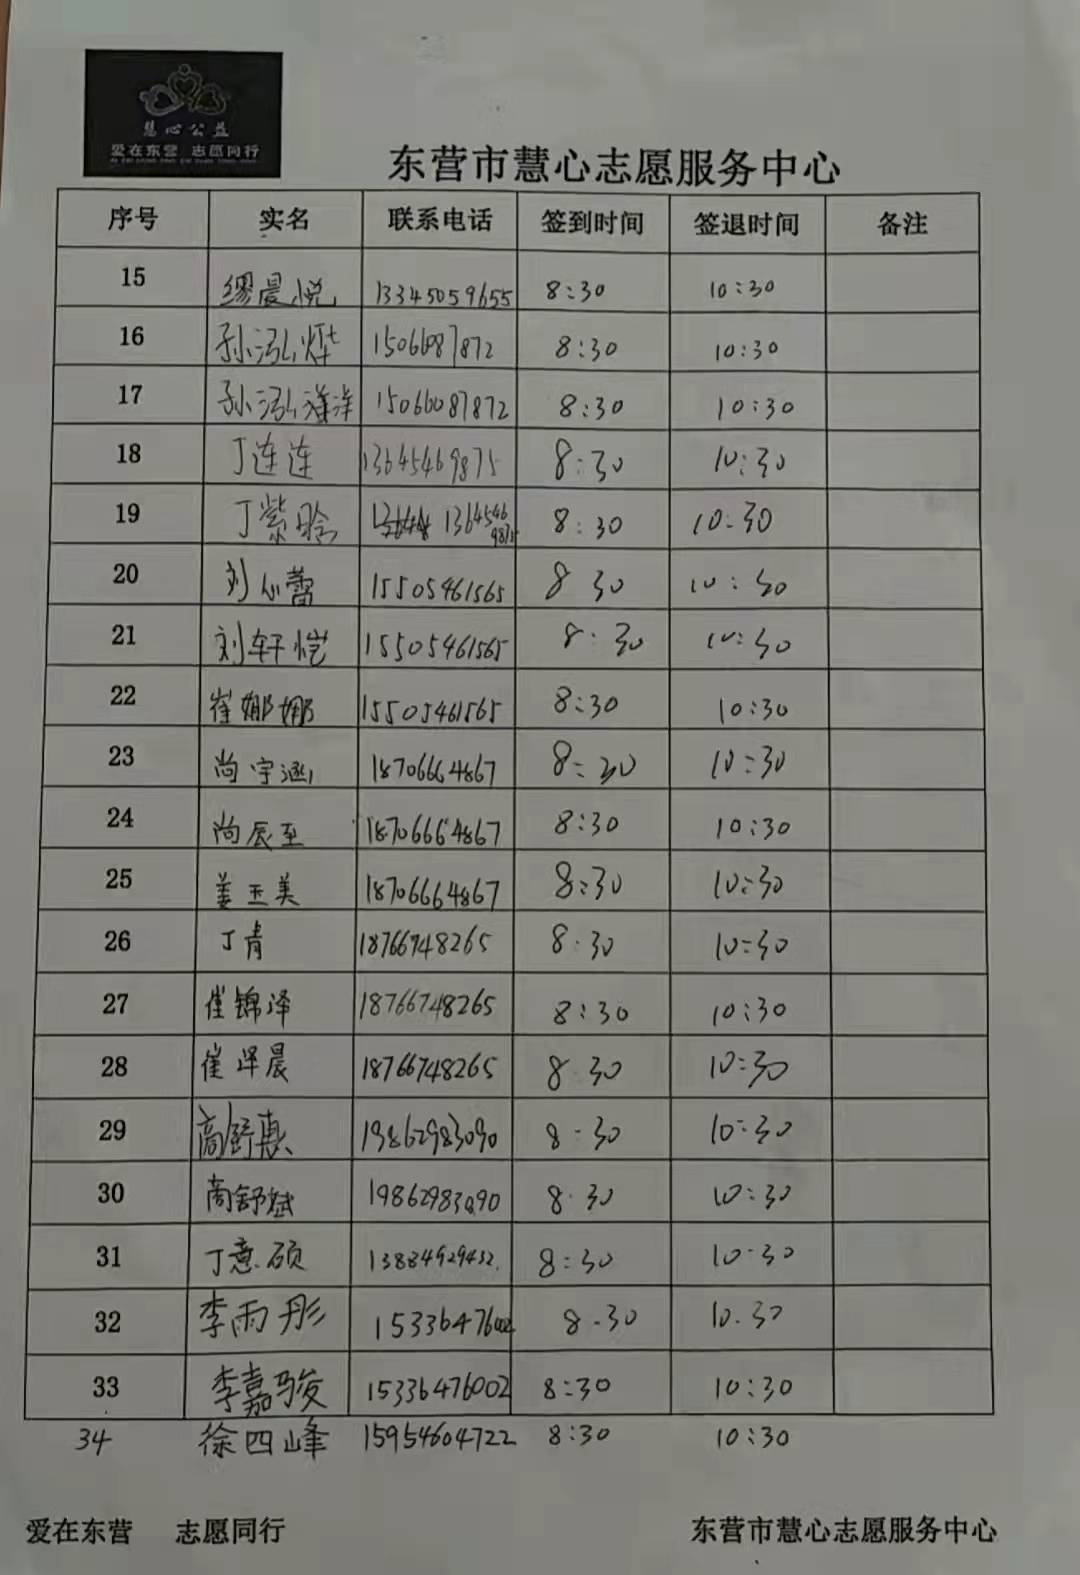 慧心公益
爱在东营 志愿同行
东营市慧心志愿服务中心
序号 实名 联系电话 签到时间 签退时间 备注
15 缪晨悦 13345059655 8:30 10:30
16 孙泓烨 15066087872 8:30 10:30
17 孙泓洋 15066087872 8:30 10:30
18 丁连连 13645469875 8:30 10:30
19 丁紫晗 13645469875 8:30 10:30
20 刘心蕾 15505461565 8 30 10:30
21 刘轩恺 15505461565 8:30 10:30
22 崔娜娜 15505461565 8:30 10:30
23 尚宇涵 18706664867 8:30 10:30
24 尚辰至 18706664867 8:30 10:30
25 姜玉美 18706664867 8:30 10:30
26 丁青 18766748265 8:30 10:30
27 崔锦泽 18766748265 8:30 10:30
28 崔泽晨 18766748265 8:30 10:30
29 高舒惠 19862983090 8:30 10:30
30 高舒斌 19862983090 8:30 10:30
31 丁意硕 13884929432 8:30 10:30
32 李雨彤 15336476002 8:30 10:30
33 李嘉骏 15336476002 8:30 10:30
34 徐四峰 15954604722 8:30 10:30
爱在东营 志愿同行 东营市慧心志愿服务中心